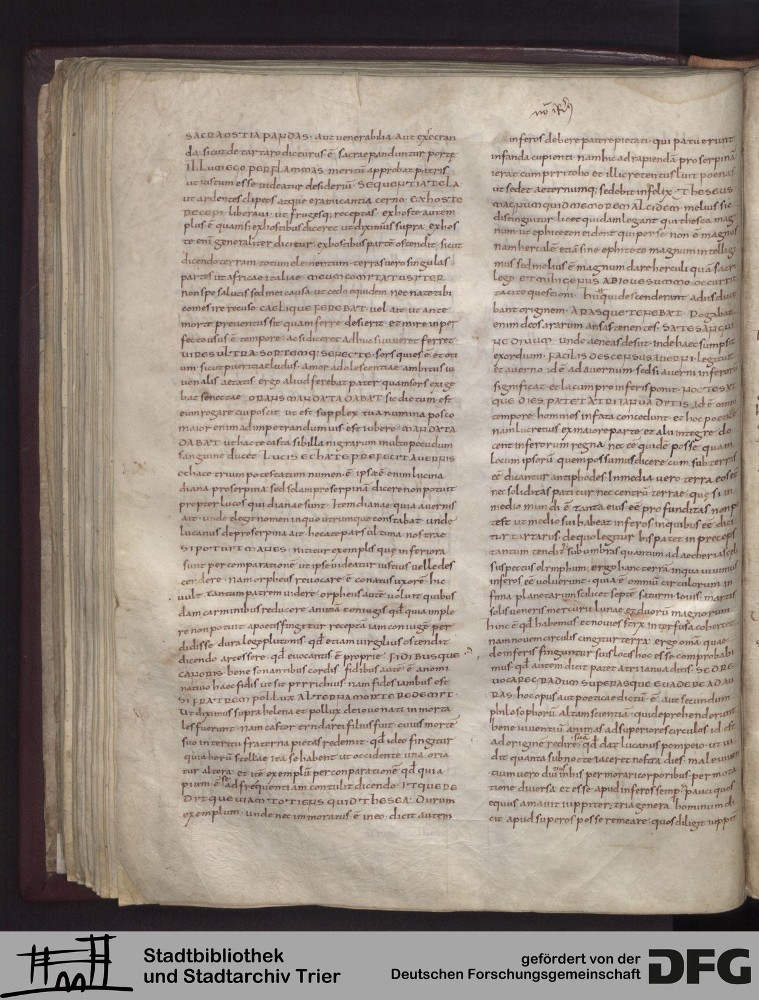 SACRA OSTIA PANDAS · aut venerabilia aut execran
da · sicut de tartaro dicturus ē · sacrae panduntur portę
ILLUM EGO PER FLAMMAS meritū approbat patris
ut iustum esse videatur desideriū · SEQUENTIA TELA
ut ardentes clipeos atque eramicantia cerno · EX HOSTE
RECEPI · liberavi · ut frugesq; receptas · ex hoste autem
plus ē quam si ex hostibus diceret ut diximus supra · ex hos
te eni generaliter dicitur · ex hostibus parte ostendit · sicut
dicendo terram totum elementum · terras vero singulas
partes ut africae italiae · MEUM COMITATUS ITER
non spe salutis sed mei causa · ut cedo equidem nec nate tibi
comes ire recuso · CAELIQUE FEREBAT · vel ait ut ante
morte preventus sit quam ferre desierit
UIRES ULTRA SORTEMQ; SENECTE · sors quies ē · et oti
um · sicut pueritiae ludus · amor adolescentiae · ambitus iu
venalis aetatis · ergo aliud ferebat pater quam sors exige
bat senectae · ORANS MANDATA DABAT · sic dictum est
eum rogare cui possit · ut est supplex tua numina posco
maior enim ad impetrandum vis est iubere · MANDATA
DABAT · ut hac te casta sibilla nigrarum multo pecudum
sanguine ducet · LUCIS ECHATE PREFECIT AUERNIS
diana proserpina sed solam proserpinā dicere non potuit
propter lucos qui dianae sunt · Item dianae quia avernis
ait · unde elegit nomen in quo utrumque constabat · unde
lucanus de proserpina ait · hecate pars ultima nostrae
SI POTUIT MANES · nititur exemplis que inferiora
sunt per comparationē · ut ipse videatur iustius velle des
cendere · nam orpheus revocare ē conatus uxorē · hic
vult tantum patrem videre · orpheus autē voluit quibus
dam carminibus reducere animā coniugis · qđ quia imple
re non potuit a poetis fingitur recepta iam coniuge per
didisse dura lege plutonis · qđ etiam virgilius ostendit
dicendo arcessere · qđ evocantis ē proprie · FIDIBUSQUE
CANORIS · bene sonantibus cordis
SI FRATREM POLLUX ALTERNA MORTE REDEMIT ·
ut diximus supra helena et pollux de iove nati inmorta
les fuerunt · nam castor tindarei filius fuit · cuius mortē
suo interitu fraterna pietas redemit · qđ ideo fingitur
quia horū stellae ita se habent ut occidente una · oria
tur altera · et itē exemplū per conparationē · qđ quia
pium ē se ad frequentiam contulit dicendo · ITQUE RE
DITQUE UIAM TOTIENS QUID THESEA · Durum
exemplum · unde nec immoratus ē in eo · dicit autem
inferos debere patere pietati · qui patuerunt
infanda cupienti · nam hic ad rapiendā proserpinā
ierat cum pirithoo et illic retentus luit poenas
ut sedet aeternumq; sedebit infelix · THESEUS
MAGNUM QUID MEMOREM ALCIDEM · melius sic
distinguitur · licet quidam legant quid thesea mag
num · ut epitheton ei dent qui per se non ē magnus
nam herculē etiā sine epitheto magnum intelligi
mus · sed melius ē magnum dare herculi quam sacri
lego · ET MI GENUS AB IOUE SUMMO · occurrit
tacite questioni · hii quidem descenderant ad inferos
bant originem · ARASQUE TENEBAT · Rogabant
enim deos ararum ansas tenentes · SATE SANGUI
NE DIUUM · unde aeneas desiit · inde haec sumpsit
exordium · FACILIS DESCENSUS AUERNI · legitur
et averno · id ē ad avernum · sed si averni inferos
significat · et lacum pro inferis ponit · NOCTES AT
QUE DIES PATET ATRI IANUA DITIS · Id ē omni
tempore homines in fata concedunt · et hoc poeticē
nam lucretius ex maiore parte et alii integre do
cent inferorum regna nec ee quidē posse · quam
locum ipsorū quem possumus dicere cum sub terris
ee dicantur antipodes · In media vero terra eos ee
nec soliditas patitur nec centrū terrae · que si in
medio mundi ē tanta eius eē profunditas non p
test ut medio sui habeat inferos in quibus eē dici
tur tartarus · de quo legitur bis patet in preceps
tantum tendit sub umbras quantum ad aetherias caeli
suspectus olimphum · ergo hanc terrā in qua vivimus
inferos eē voluerunt · quia ē omniū circulorum in
fima · planetarum scilicet septē saturni · iovis · martis
solis veneris mercurii lunae et duorū magnorum
hinc ē qđ habemus et novies styx interfusa cohercet
nam novem circulis cingitur terra · ergo omā quae
de inferis finguntur suis locis hoc esse comprobabi
mus · qđ autem dicit patet atri ianua ditis · SED RE
UOCARE GRADUM SUPERASQUE EUADERE AD AU
RAS · hoc opus aut poeticae dictū ē · aut secundum
philosophorū altam scientiā · qui deprehenderunt
bene viventiū animas ad superiores circulos id est
ad originē suā redire · qđ dat lucanus pompeio · ut vi
dit quanta sub nocte iaceret nostra dies · male viven
tium vero diutius in his permorari corporibus permuta
tione diversa · et esse apud inferos semp · pauci quos
equus amavit iuppiter · tria genera hominum di
cit apud superos posse remeare · quos diligit iuppit
Stadtbibliothek
und Stadtarchiv Trier
gefördert von der
Deutschen Forschungsgemeinschaft
DFG